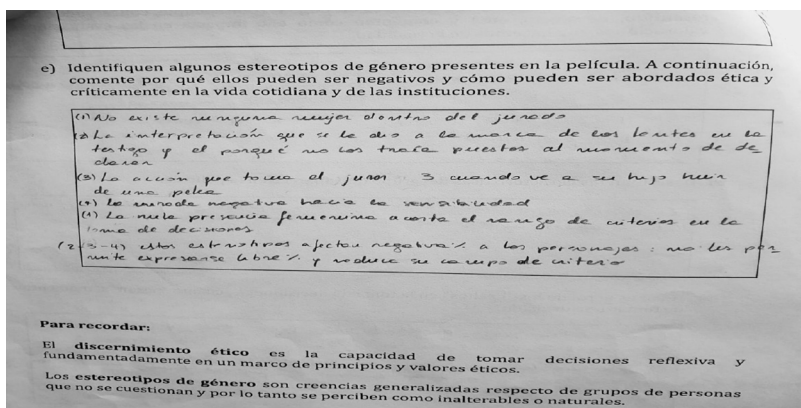 e) Identifiquen algunos estereotipos de género presentes en la película. A continuación,
comente por qué ellos pueden ser negativos y cómo pueden ser abordados ética y
críticamente en la vida cotidiana y de las instituciones.
(1) No existe ninguna mujer dentro del jurado
(2) La interpretación que se le dio a la marca de los lentes en la
testigo y el porqué no los traía puestos al momento de de
clarar
(3) La acción que toma el juror 3 cuando ve a su hijo huir
de una pelea
(4) la mirada negativa hacia la sensibilidad
(1) La nula presencia femenina acorta el rango de criterios en la
toma de decisiones
(2-3-4) estos estereotipos afectan negativa% a los personajes: no les per
mite expresarse libre% y reduce su campo de criterio
Para recordar:
El discernimiento ético es la capacidad de tomar decisiones reflexiva y
fundamentadamente en un marco de principios y valores éticos.
Los estereotipos de género son creencias generalizadas respecto de grupos de personas
que no se cuestionan y por lo tanto se perciben como inalterables o naturales.